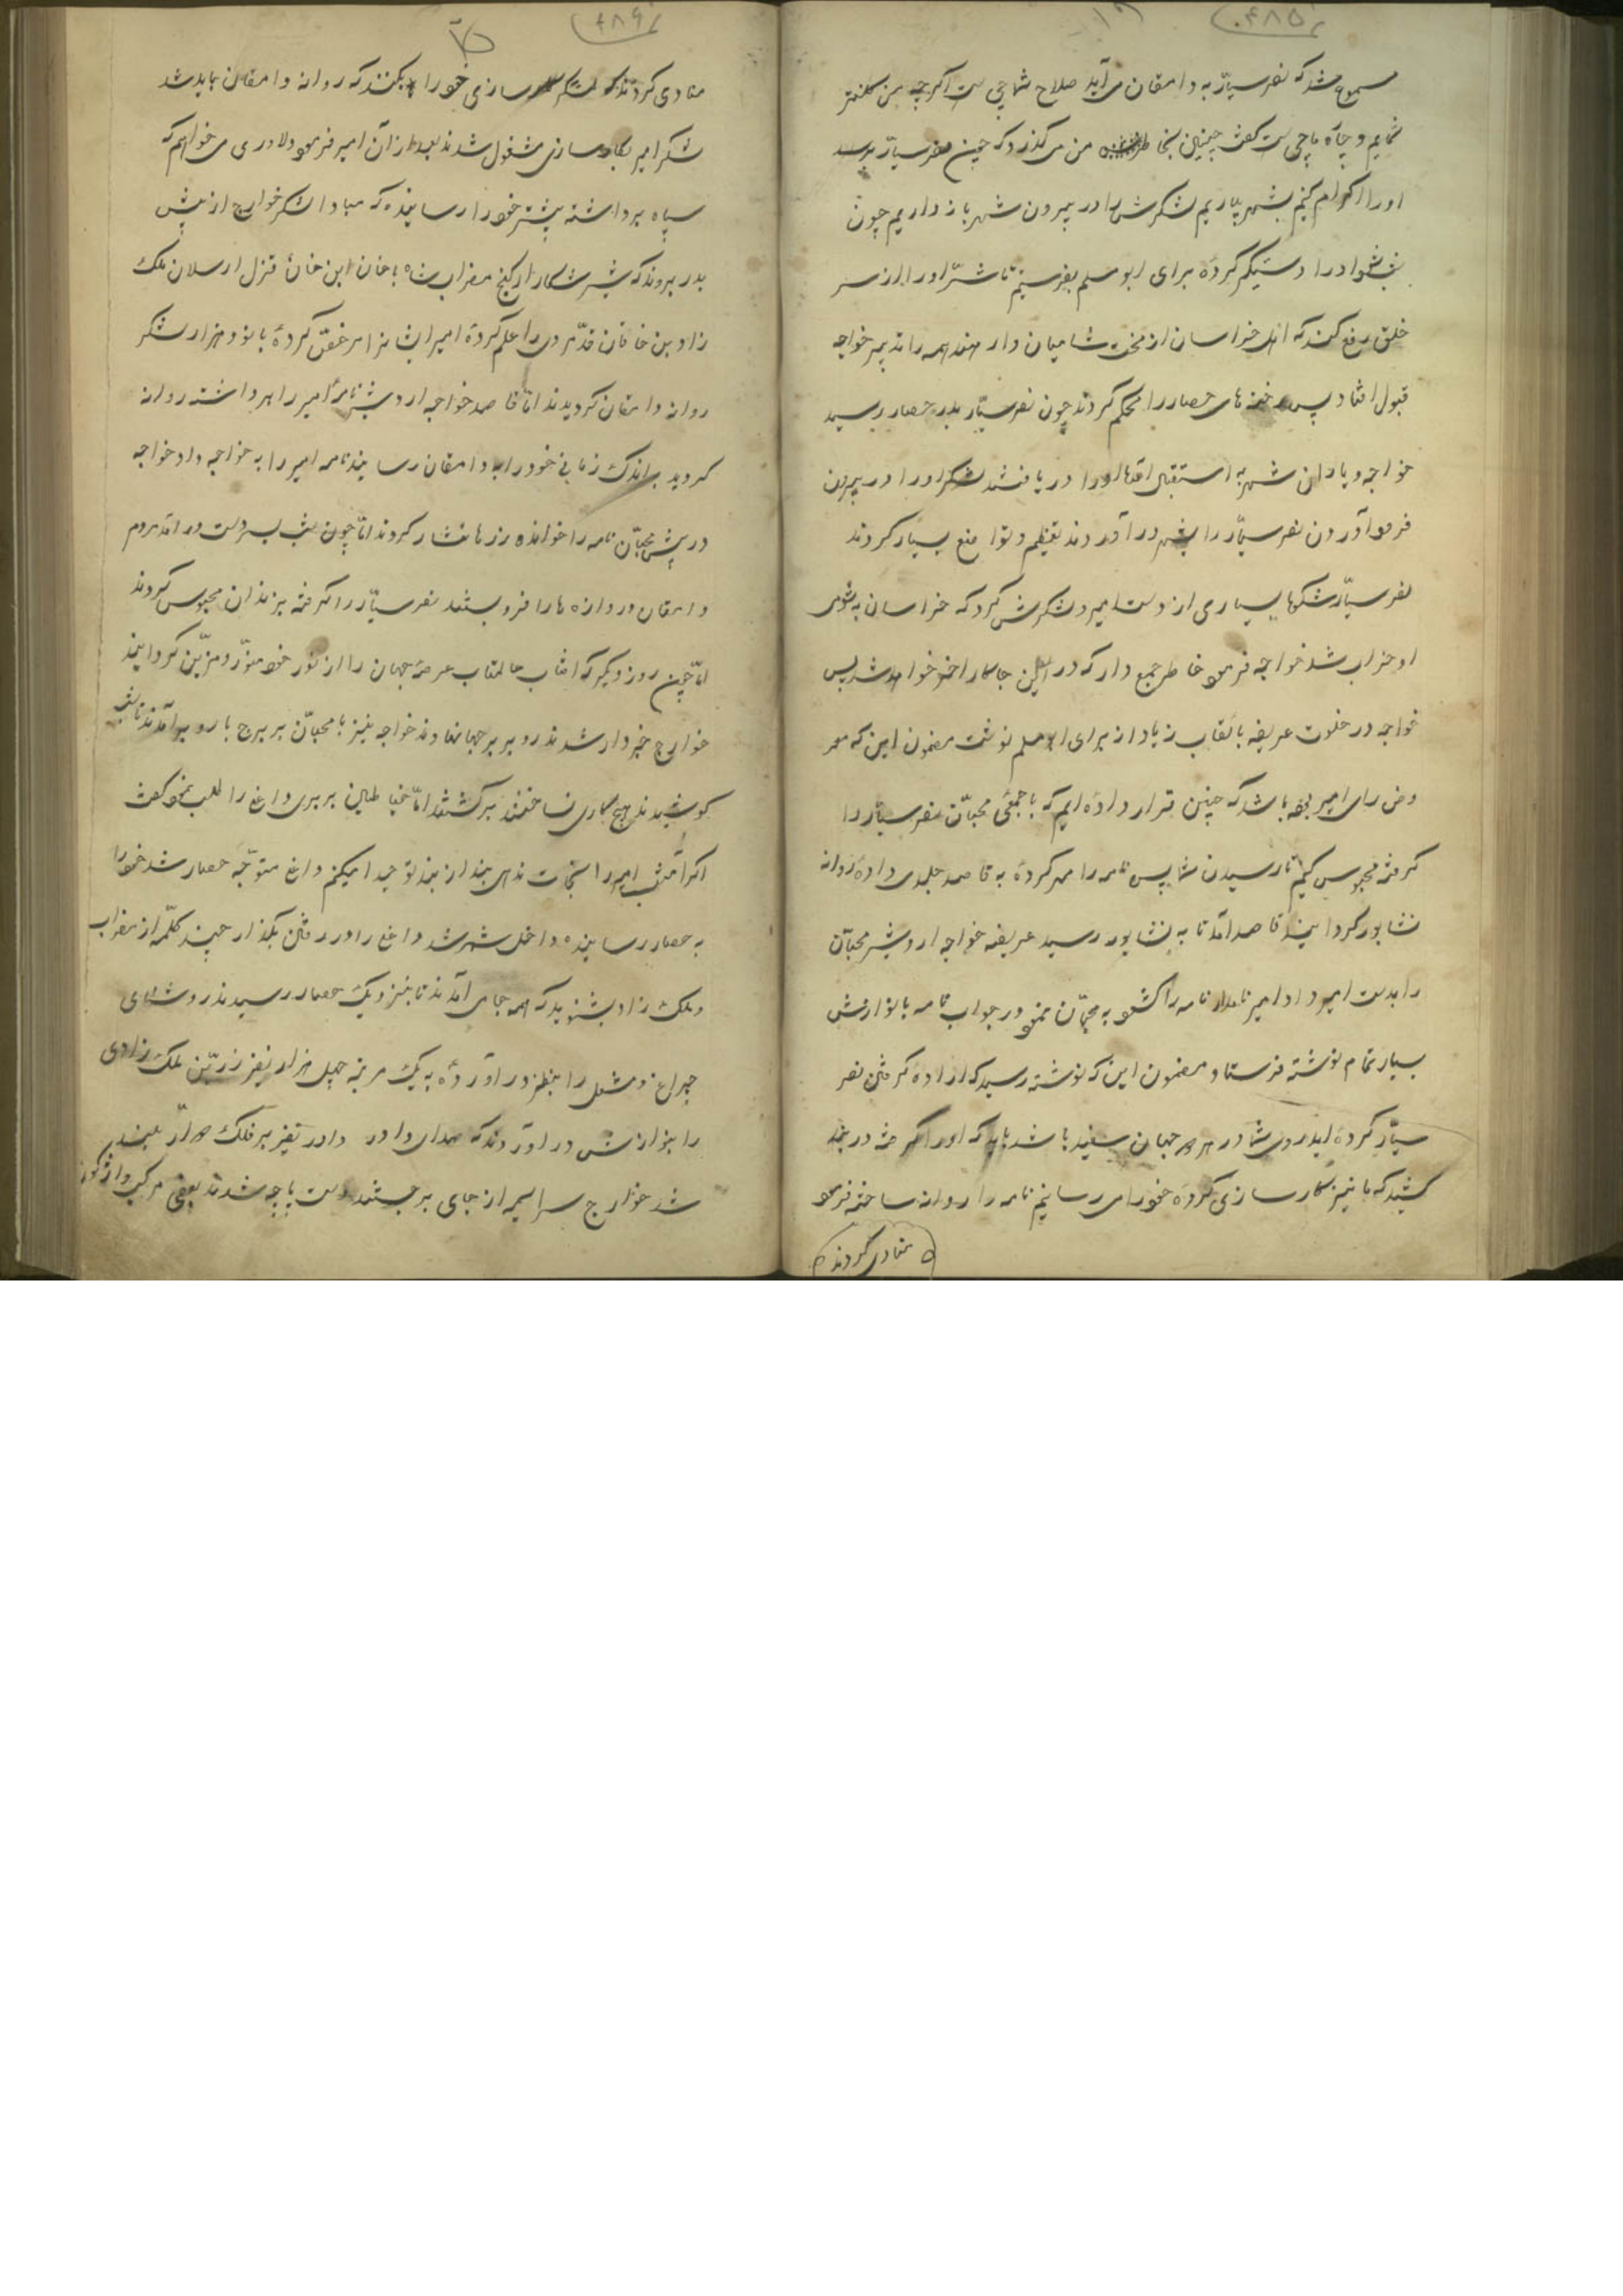 ۴۸۵
مسموع شد که نصر سیّار به دامغان می آید صلاح شما چی ست اگرچه من کلانتر
شمایم و چاره ما چی ست گفت چنین بخاطر من می گذرد که چون نصر سیّار برسد
او را اکرام کنیم بشهر بیاریم لشکرش را در بیرون شهر باز داریم چون
شب شود او را دستگیر کرده برای ابومسلم بفرستیم تا شرّ او را از سر
خلق رفع کند که اهل خراسان از محنت شامیان وارهند همه را تدبیر خواجه
قبول افتاد پس رخنه های حصار را محکم کردند چون نصر سیّار بدر حصار رسید
خواجه و یاران شهر به استقبال آمدند او را دریافتند لشکر او را در بیرون
فرود آوردن نصر سیّار را بشهر درآوردند تعظیم و تواضع بسیار کردند
نصر سیّار شکوهای بسیاری از دست امیر و لشکرش کرد که خراسان به شومی
او خراب شد خواجه فرمود خاطر جمع دار که در این جا کار آخر خواهد شد پس
خواجه در خلوت عریضه بالقاب زیاد از برای ابومسلم نوشت مضمون این که معر
وض رای امیر بوده باشد که چنین قرار داده ایم که با جمعی محبّان نصر سیّار را
گرفته محبوس کنیم تا رسیدن شما پس نامه را مهر کرده به قاصد جلدی داده روانه
نشابور گردانیند قاصد آمد تا به نشابور رسید عریضه خواجه اردشیر محبّان
را بدست امیر داد امیر نامدار نامه را گشود به محبّان نمود در جواب نامه بانوازش
بسیار تمام نوشته فرستاد مضمون این که نوشته رسید که اراده گرفتن نصر
سیّار کرده اید روی شما در هر دو جهان سفید باشد باید که او را گرفته در بند
کشید که ما نیز کارسازی کرده خود را می رسانیم نامه را روانه ساخته فرمود
منادی کردند
۴۸۶
منادی کردند که لشکر کارسازی خود را بکنند که روانه دامغان باید شد
لشکر امیر بکارسازی مشغول شدند بعد از آن امیر فرمود دلاوری می خواهم که
سپاه برداشته پیشتر خود را رسانیده که مبادا لشکر خوارج از پیش
بدر بروند که شیر شکار ارکنج مضراب شاه با خان ابن خان قزل ارسلان ملک
زاد بن خاقان قد مردی را علم کرده امیر ایشانرا مرخص کرده با نود هزار لشکر
روانه دامغان گردیدند امّا قاصد خواجه اردشیر نامه امیر را برداشته روانه
گردید به اندک زمانی خود را به دامغان رسانید نامه امیر را به خواجه داد خواجه
در پیش محبّان نامه را خوانده زرها نثار کردند امّا چون شب بسر دست درآمد مردم
دامغان دروازه ها را فرو بستند نصر سیّار را گرفته بزندان محبوس کردند
امّا چون روز دیگر که آفتاب عالمتاب عرصه جهان را از نور خود منوّر و مزیّن گردانیند
خوارج خبردار شدند رو بر بر جها نهادند خواجه نیز با محبّان بر برج بارو برآمدند تا شب
کوشیدند هیچ کاری نساختند برگشتند امّا خیاطان بربری داغ را طلب نمود گفت
اگر امشب امیر را نجات ندهی بند از بندتو جدا میکنم داغ متوجّه حصار شد خود را
به حصار رسانیده داخل شهر شد داغ را در رفتن بگذار چند کلمه از مضراب
و ملک زاد بشنوید که همه جای آمدند تا بنزدیک حصار رسیدند روشنای
چراغ و مشعل را بنظر درآورده به یک مرتبه چهل هزار نفیر زرّین ملک زادی
را بنوازش درآوردند که صدای دادر دادر نفیر بر فلک دوّار بلند
شد خوارج سراسیمه از جای برجستند دست پاچه شدند بعضی مرکب واژگون